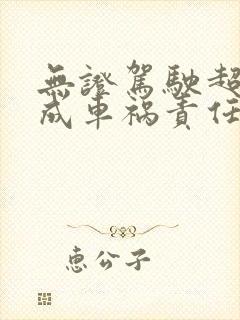 無證駕駛超
成車禍責任
恵公子